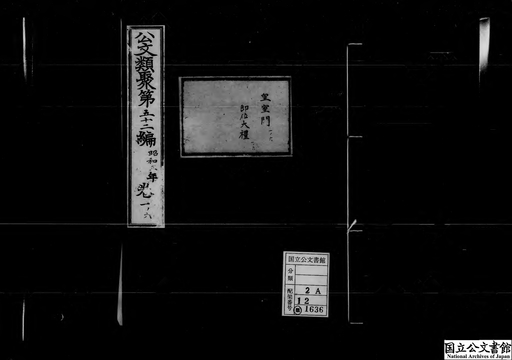 公文類聚第五十二編
昭和 年
皇室門
即位大禮
国立公文書館
分類
配架番号
2 A
12
1636
国立公文書館
National Archives of Japan